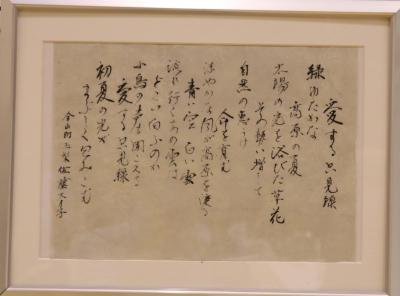 愛する只見線
緑ゆたかな
高原の夏
太陽の光を浴びた草花
その勢い増して
自然の恵み
命を育む
さわやかな風が高原を渡る
青い空 白い雲
流れ行くあの雲は
どこへ向ふのか
小鳥の声聞こえる
愛する只見線
初夏の光が
まぶしく
金山町